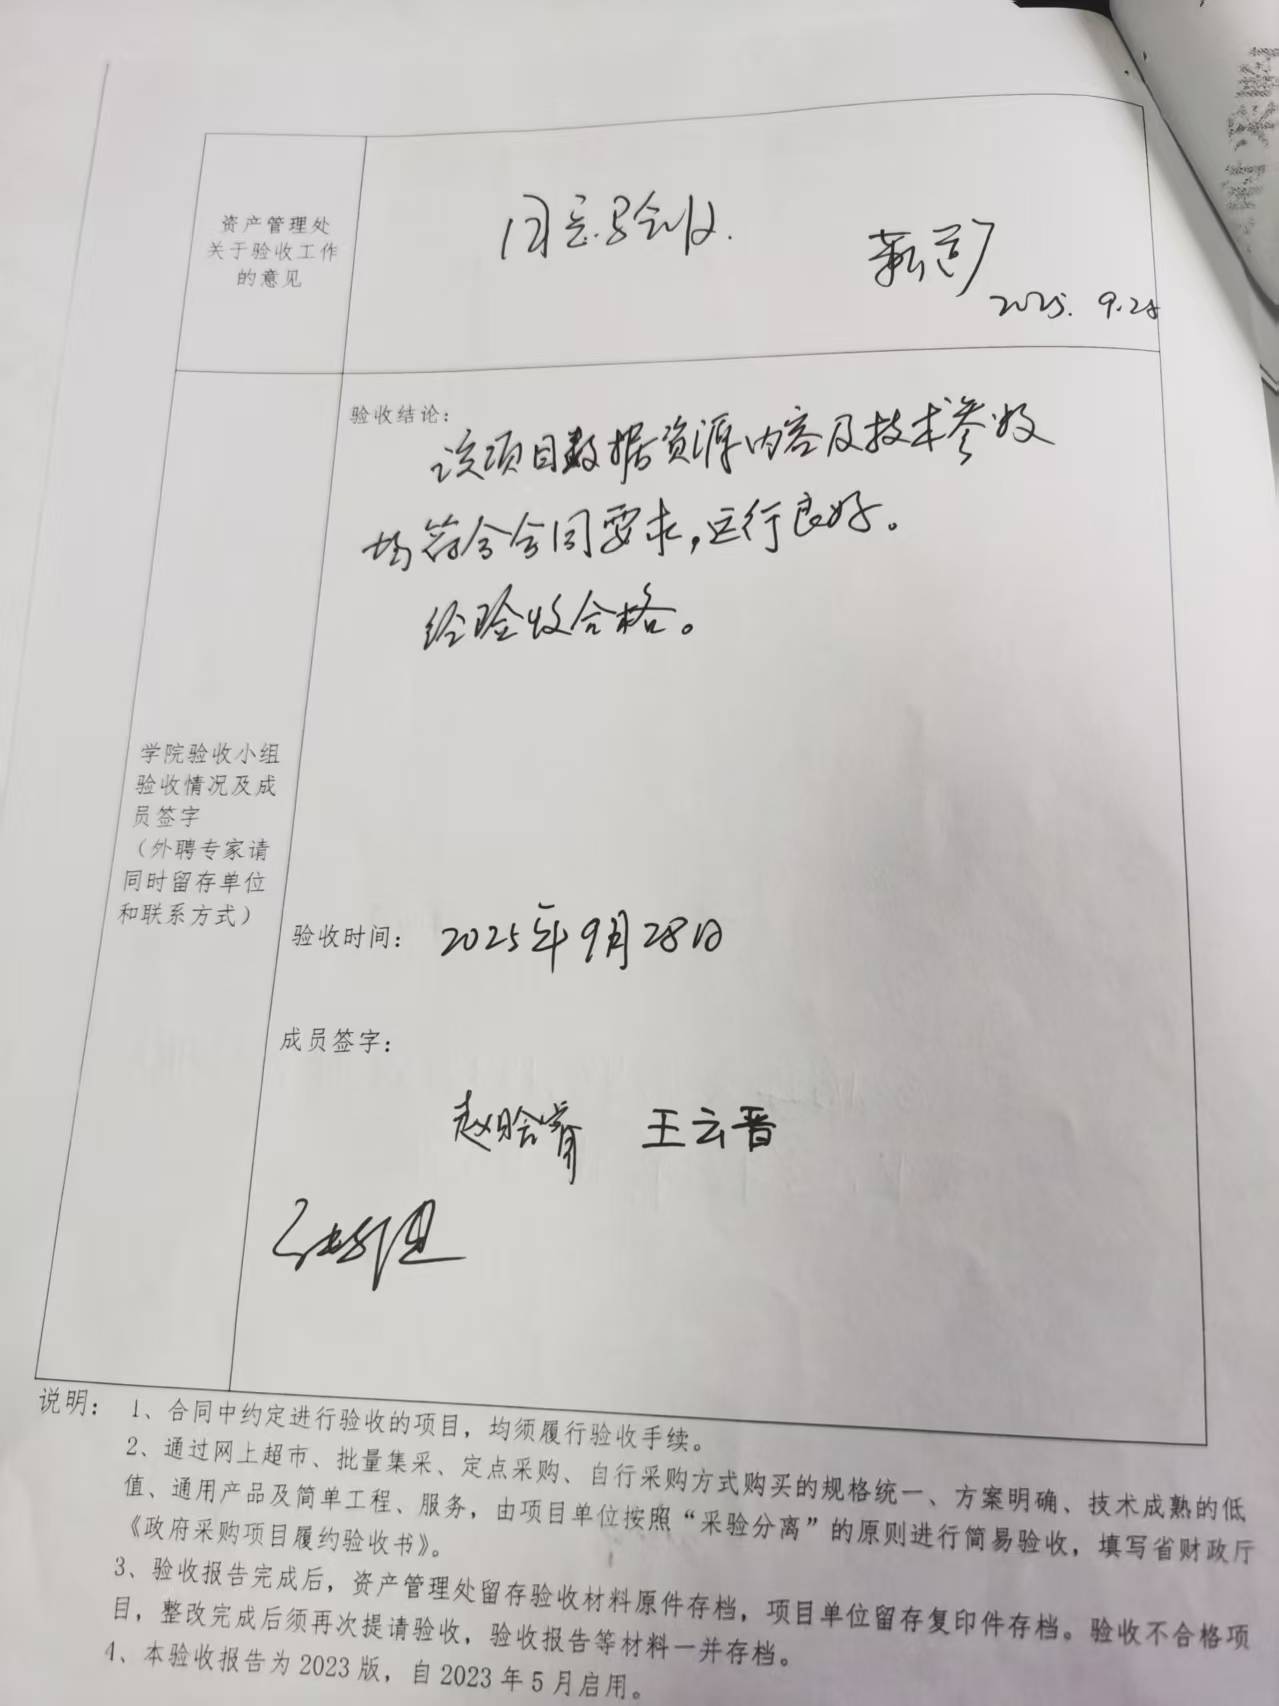 资产管理处
关于验收工作
的意见
同意验收.
2025. 9.28
验收结论:
该项目数据资源内容及技术参数
均符合合同要求,运行良好。
经验收合格。
学院验收小组
验收情况及成
员签字
（外聘专家请
同时留存单位
和联系方式）
验收时间: 2025年9月28日
成员签字:
赵晗睿 王云晋
说明: 1、合同中约定进行验收的项目，均须履行验收手续。
2、通过网上超市、批量集采、定点采购、自行采购方式购买的规格统一、方案明确、技术成熟的低
值、通用产品及简单工程、服务，由项目单位按照“采验分离”的原则进行简易验收，填写省财政厅
《政府采购项目履约验收书》。
3、验收报告完成后，资产管理处留存验收材料原件存档，项目单位留存复印件存档。验收不合格项
目，整改完成后须再次提请验收，验收报告等材料一并存档。
4、本验收报告为2023版，自2023年5月启用。